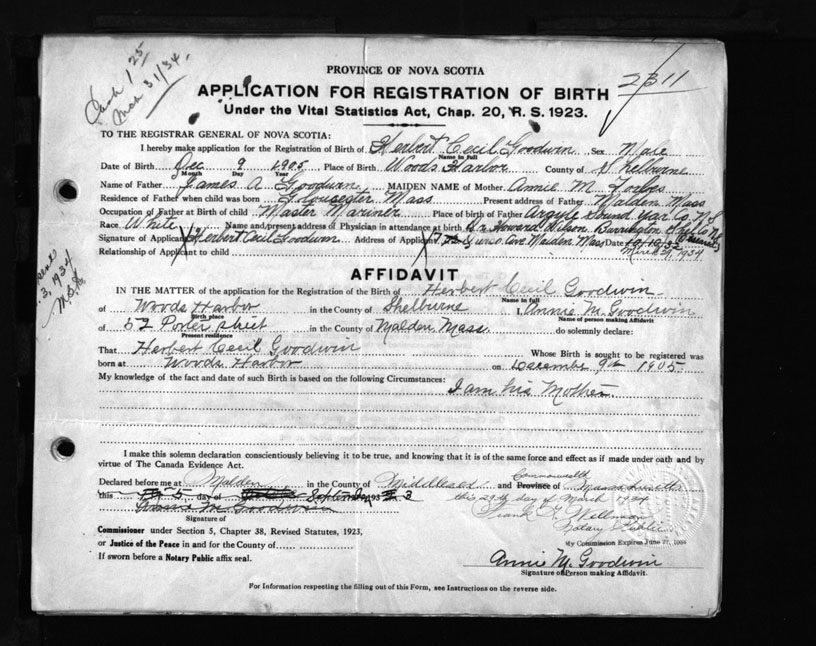 Cash 1 25
Mch 31/34.
PROVINCE OF NOVA SCOTIA
2311
APPLICATION FOR REGISTRATION OF BIRTH
Under the Vital Statistics Act, Chap. 20, R. S. 1923.
TO THE REGISTRAR GENERAL OF NOVA SCOTIA:
I hereby make application for the Registration of Birth of Herbert Cecil Goodwin Sex Male
Name in full
Date of Birth Dec 9 1905 Place of Birth Woods Harbor County of Shelburne
Month Day Year
Name of Father James A Goodwin MAIDEN NAME of Mother Annie M Forbes
Residence of Father when child was born Gloucester Mass Present address of Father Malden Mass
Occupation of Father at Birth of child Master Mariner Place of Birth of Father Argyle Sound Yar Co N S
Race White Name and present address of Physician in attendance at birth Dr Howard Wilson Barrington Shelb N S
Signature of Applicant Herbert Cecil Goodwin Address of Applicant Ave Malden Mass Date
March 31, 1934
Relationship of Applicant to child
3, 1934
AFFIDAVIT
IN THE MATTER of the application for the Registration of the Birth of Herbert Cecil Goodwin
Name in full
of Woods Harbor in the County of Shelburne I, Annie M. Goodwin
Birth place Name of person making Affidavit
of 52 Porter street in the County of Malden Mass do solemnly declare:
Present residence
That Herbert Cecil Goodwin Whose Birth is sought to be registered was
born at Woods Harbor on December 9th 1905.
My knowledge of the fact and date of such Birth is based on the following Circumstances: I am his Mother
I make this solemn declaration conscientiously believing it to be true, and knowing that it is of the same force and effect as if made under oath and by
virtue of The Canada Evidence Act.
Commonwealth
Declared before me at Malden in the County of Middlesex and Province of Massachusetts
this 5 day of September 193 3 this 29th day of March 1934
Annie M Goodwin Frank Wellman
Signature of Notary Public
Commissioner under Section 5, Chapter 38, Revised Statutes, 1923,
or Justice of the Peace in and for the County of My Commission Expires June 27, 1938
If sworn before a Notary Public affix seal.
Annie M. Goodwin
Signature of Person making Affidavit.
For Information respecting the filling out of this Form, see Instructions on the reverse side.